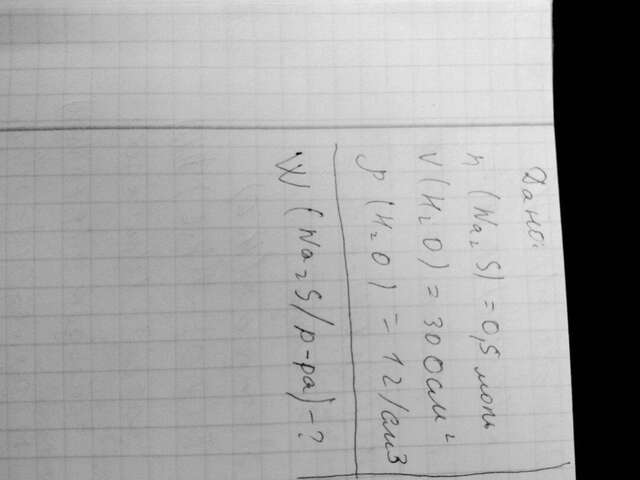 Дано:
n (Na₂S) = 0,5 моль
V (H₂O) = 300 см²
ρ (H₂O) = 1г/см3
W (Na₂S/р-ра) - ?